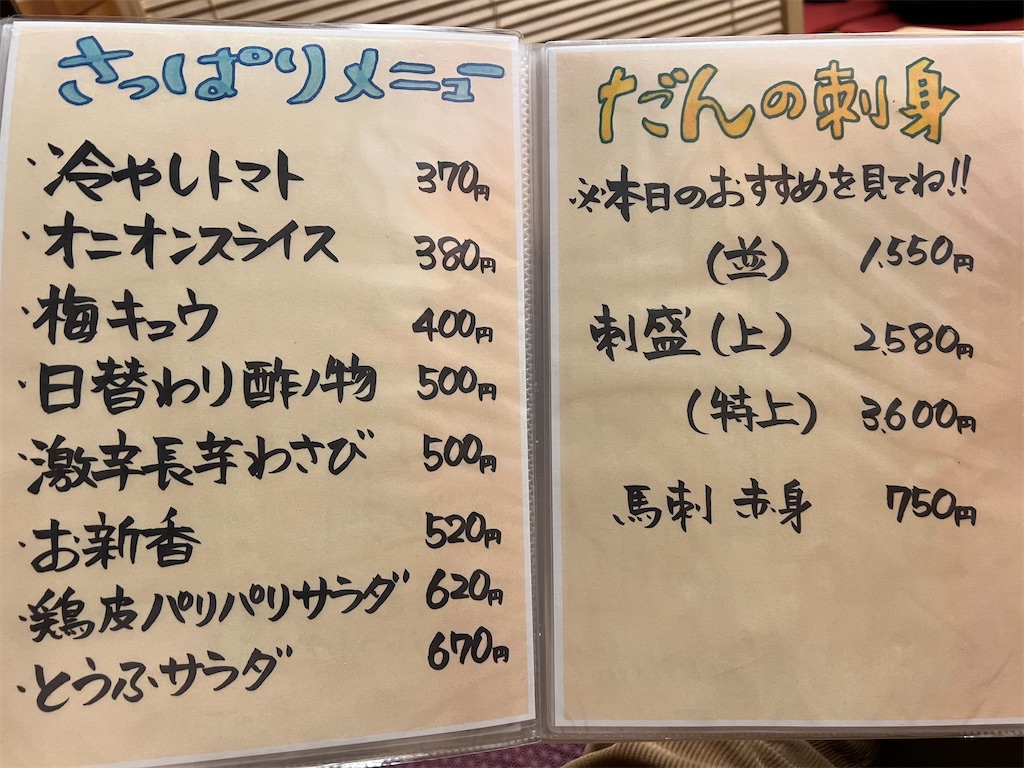 さっぱりメニュー
・冷やしトマト 370円
・オニオンスライス 380円
・梅キュウ 400円
・日替わり酢ノ物 500円
・激辛長芋わさび 500円
・お新香 520円
・鶏皮パリパリサラダ 620円
・とうふサラダ 670円
だごんの刺身
※本日のおすすめを見てね!!
(並) 1,550円
刺盛(上) 2,580円
(特上) 3,600円
馬刺 赤身 750円